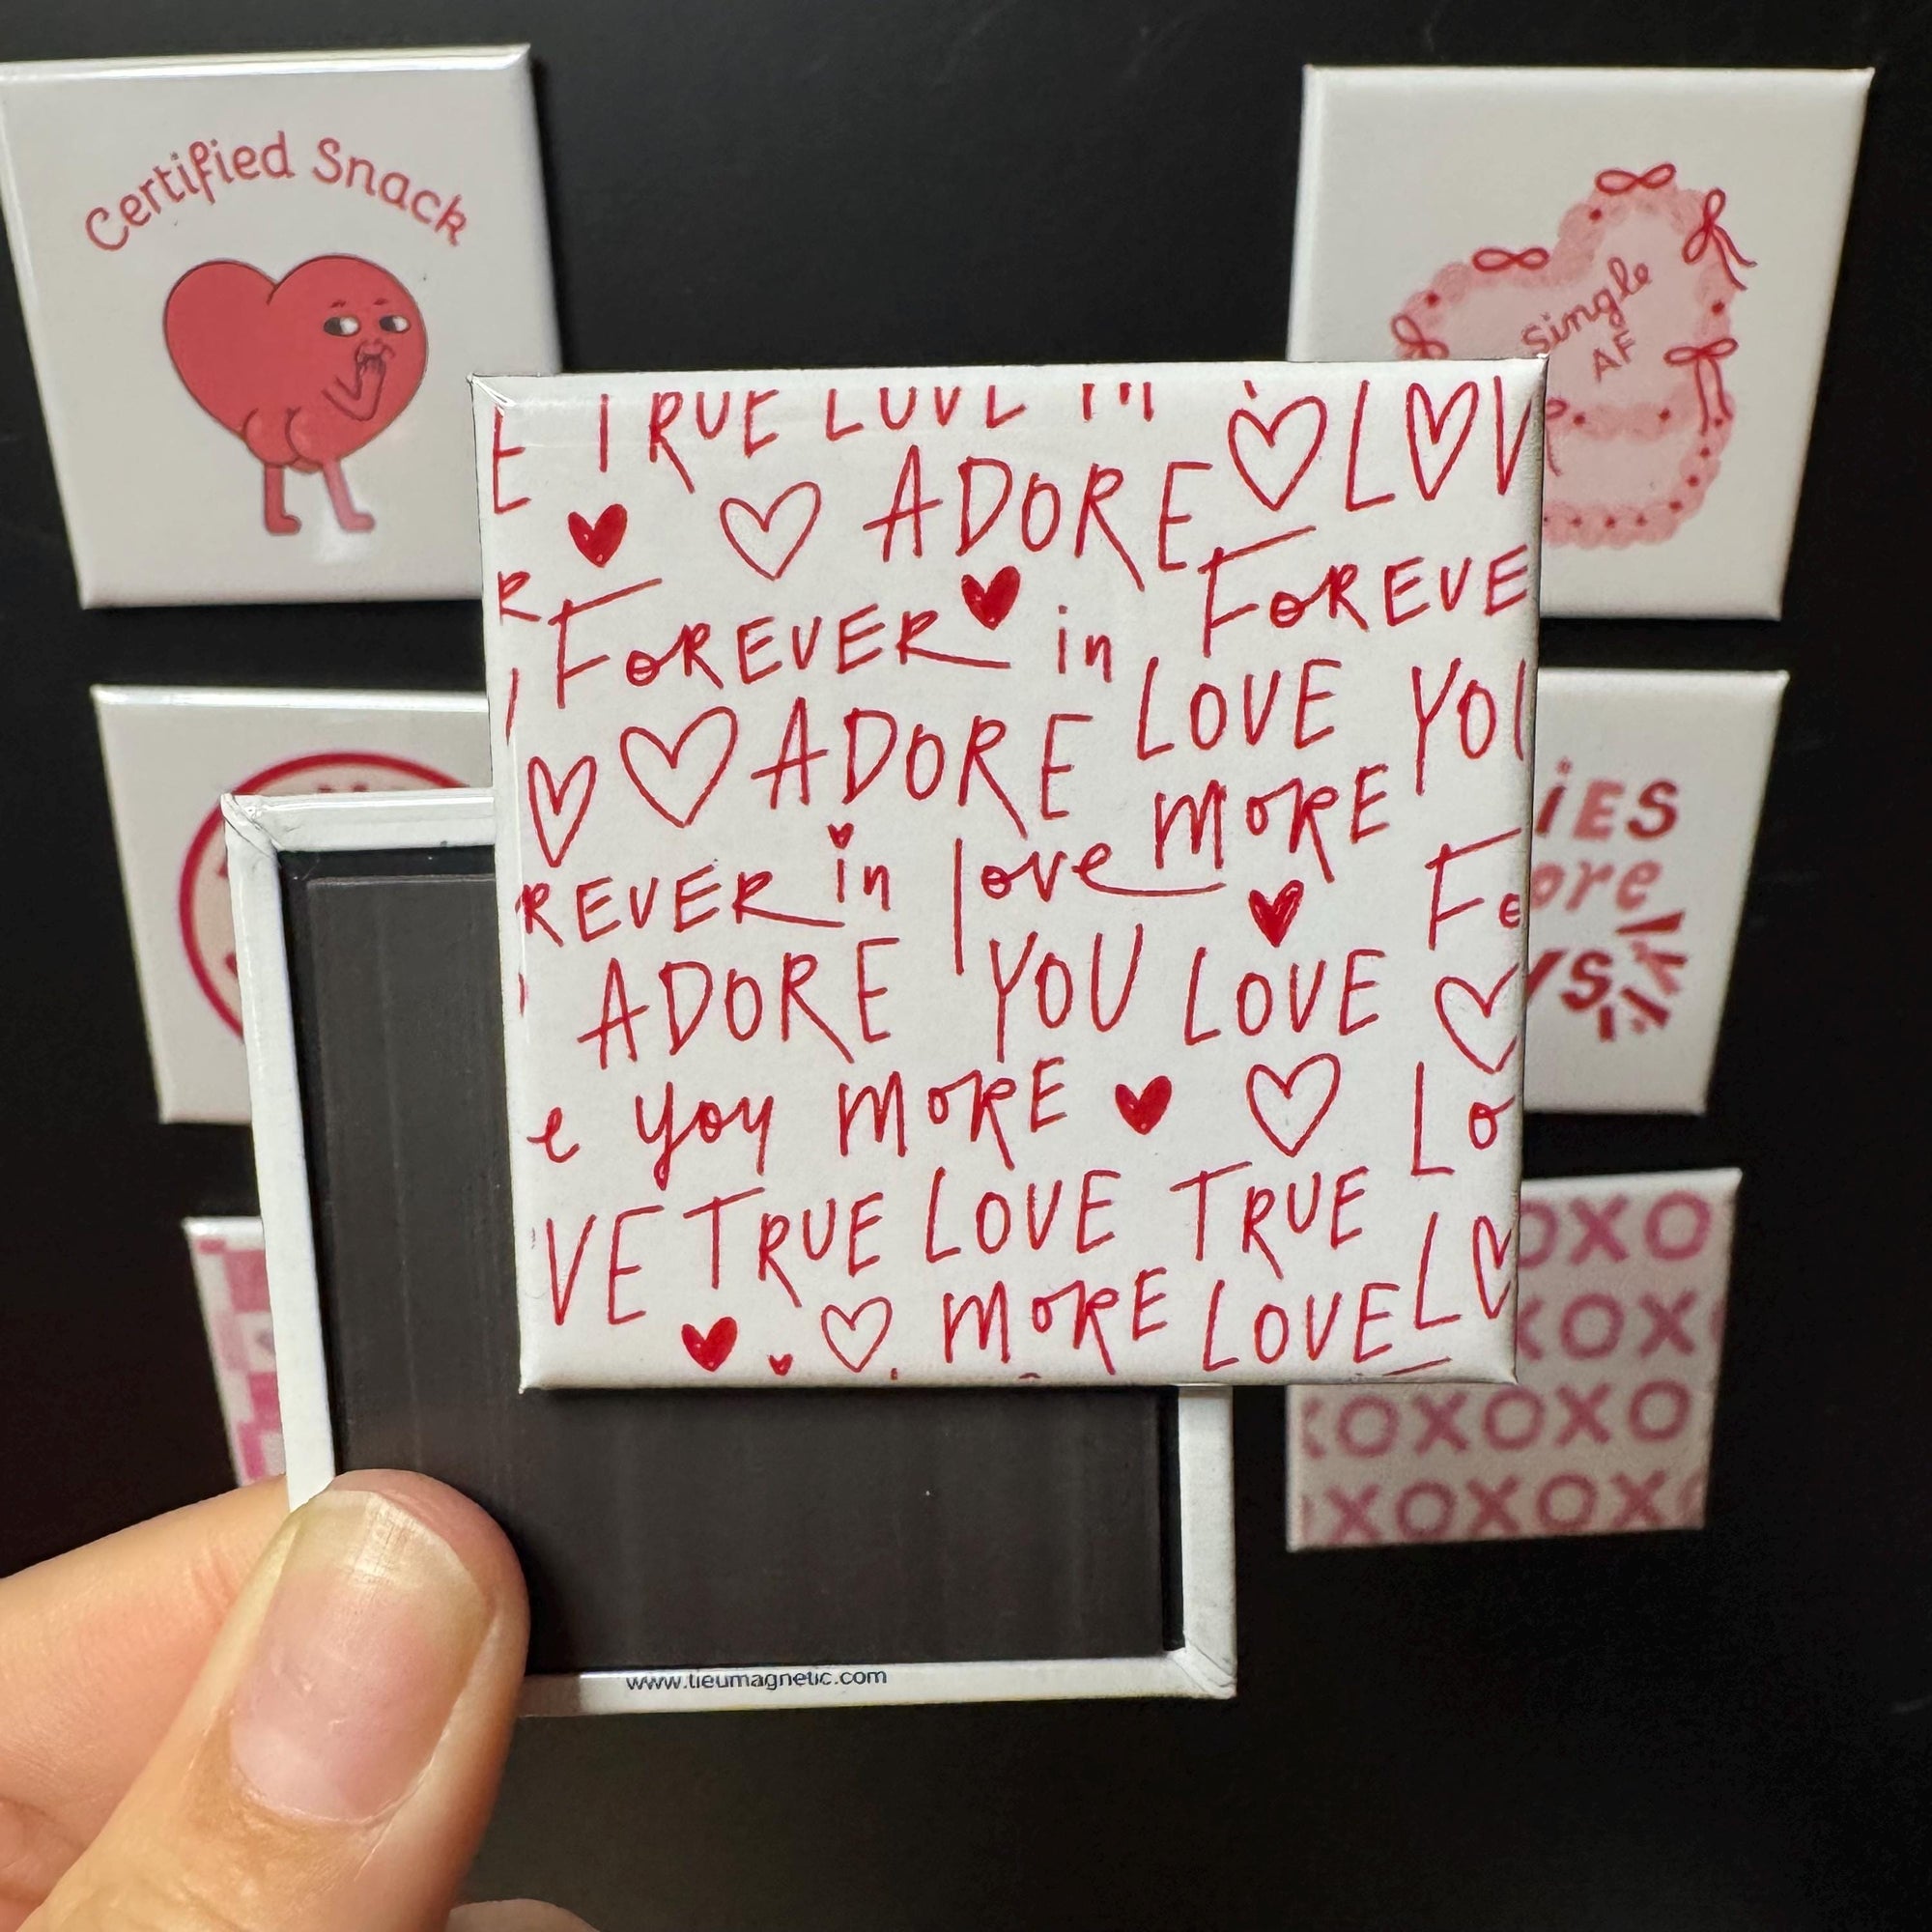 Certified Snack
Single
AF
E TRUE LOVE in
ADORE LOV
R FOREVER in FOREVE
ADORE LOVE YOU
REVER in love MORE Fo
ADORE YOU LOVE
e you MORE Lo
VE TRUE LOVE TRUE
MORE LOVE LO
iES
ore
YS
OXO
XOX
XOXOXO
XOXOX
www.tieumagnetic.com